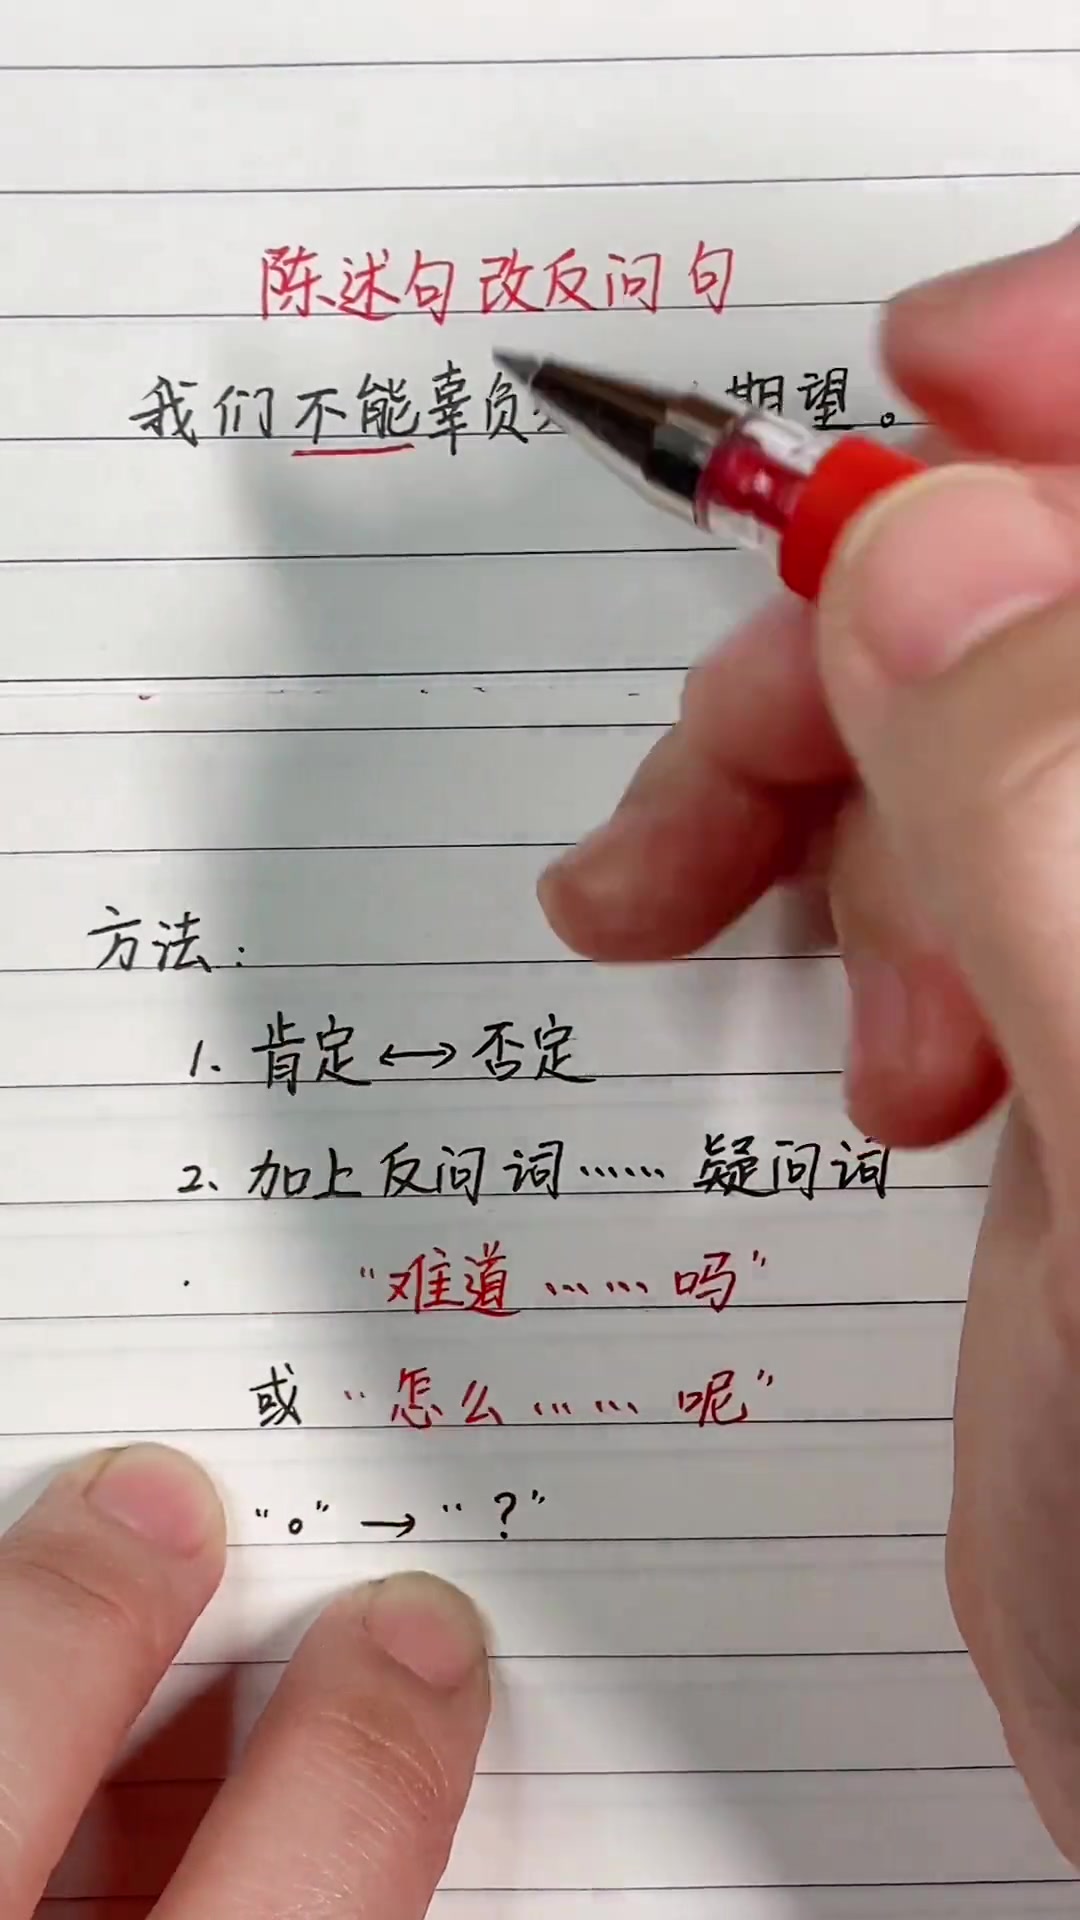 陈述句改反问句
我们不能辜负期望。
方法：
1、肯定↔否定
2、加上反问词……疑问词
“难道……吗”
或“怎么……呢”
“。”→“？”